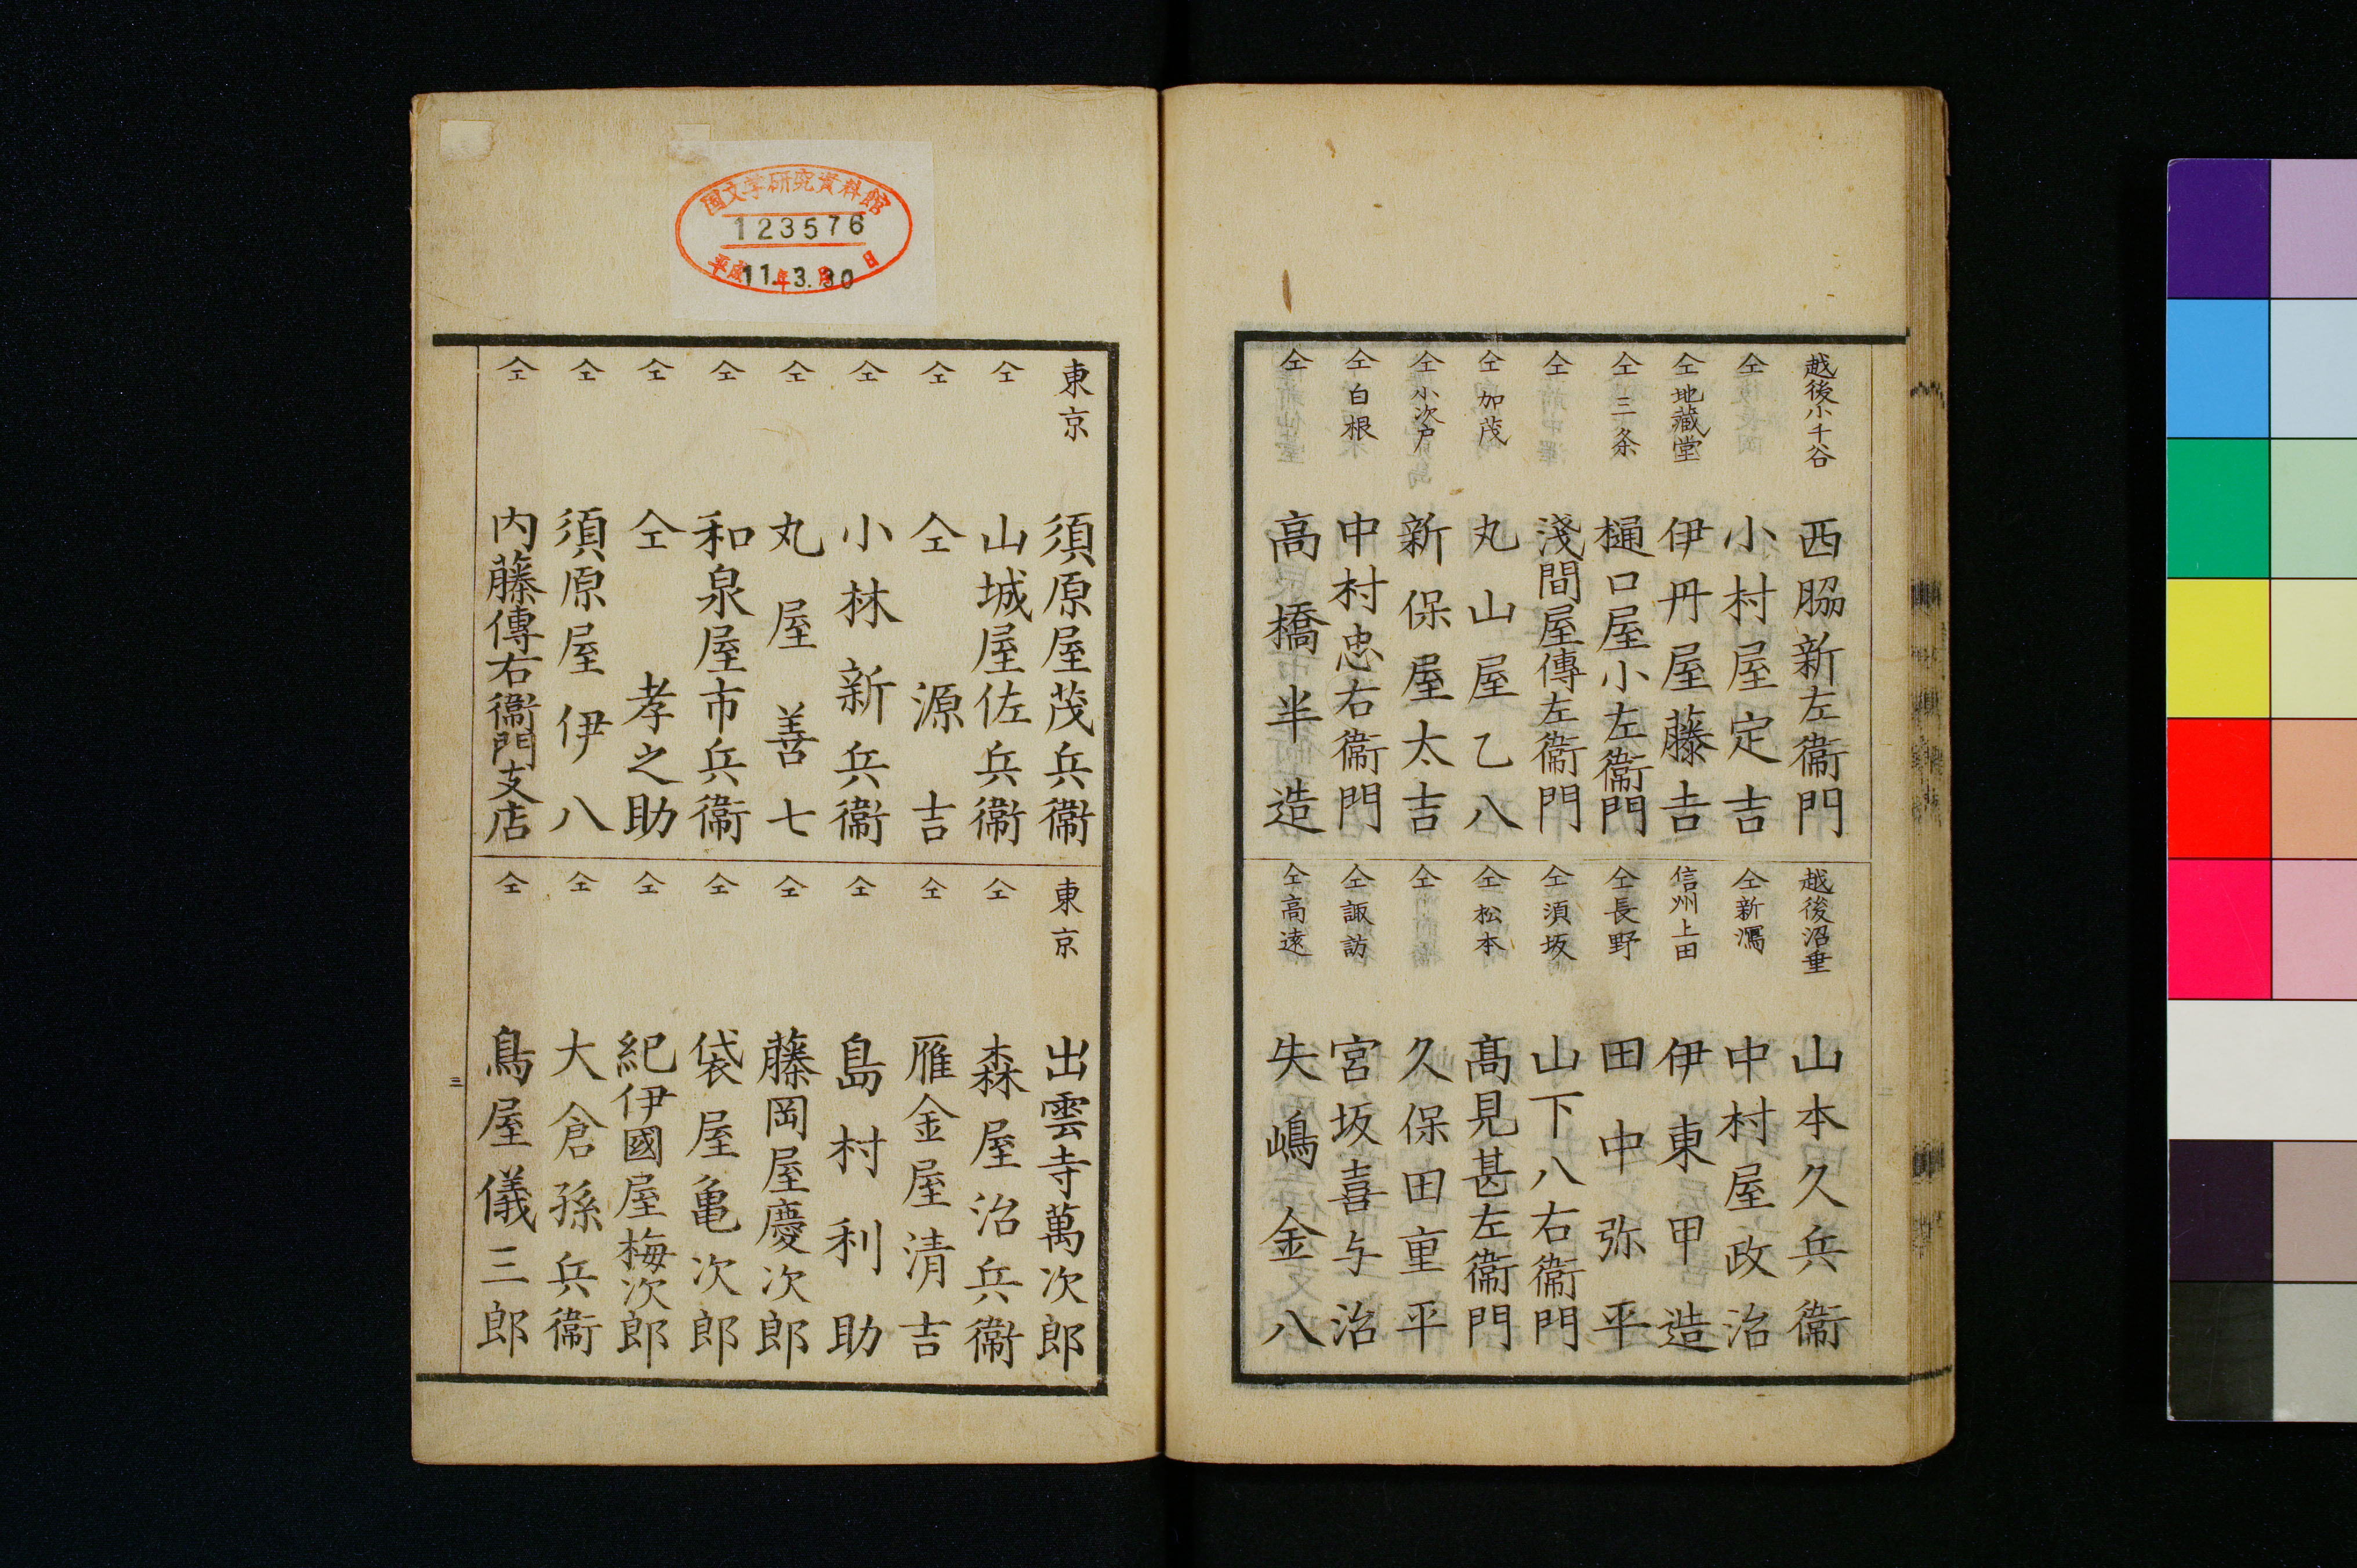 越後小千谷 西脇新左衞門
仝 小村屋定吉
仝地藏堂 伊丹屋藤吉
仝三条 樋口屋小左衞門
仝 淺間屋傳左衞門
仝加茂 丸山屋乙八
仝小次戸 新保屋太吉
仝白根 中村忠右衞門
仝 高橋半造
越後沼垂 山本久兵衞
仝新潟 中村屋政治
信州上田 伊東甲造
仝長野 田中弥平
仝須坂 山下八右衞門
仝松本 髙見甚左衞門
仝 久保田重平
仝諏訪 宮坂喜与治
仝高遠 矢嶋金八
東京 須原屋茂兵衞
仝 山城屋佐兵衞
仝 仝源吉
仝 小林新兵衞
仝 丸屋善七
仝 和泉屋市兵衞
仝 仝孝之助
仝 須原屋伊八
仝 内藤傳右衞門支店
東京 出雲寺萬次郎
仝 森屋治兵衞
仝 雁金屋清吉
仝 島村利助
仝 藤岡屋慶次郎
仝 袋屋亀次郎
仝 紀伊國屋梅次郎
仝 大倉孫兵衞
仝 鳥屋儀三郎
三
国文学研究資料館
123576
平成11年3月30日